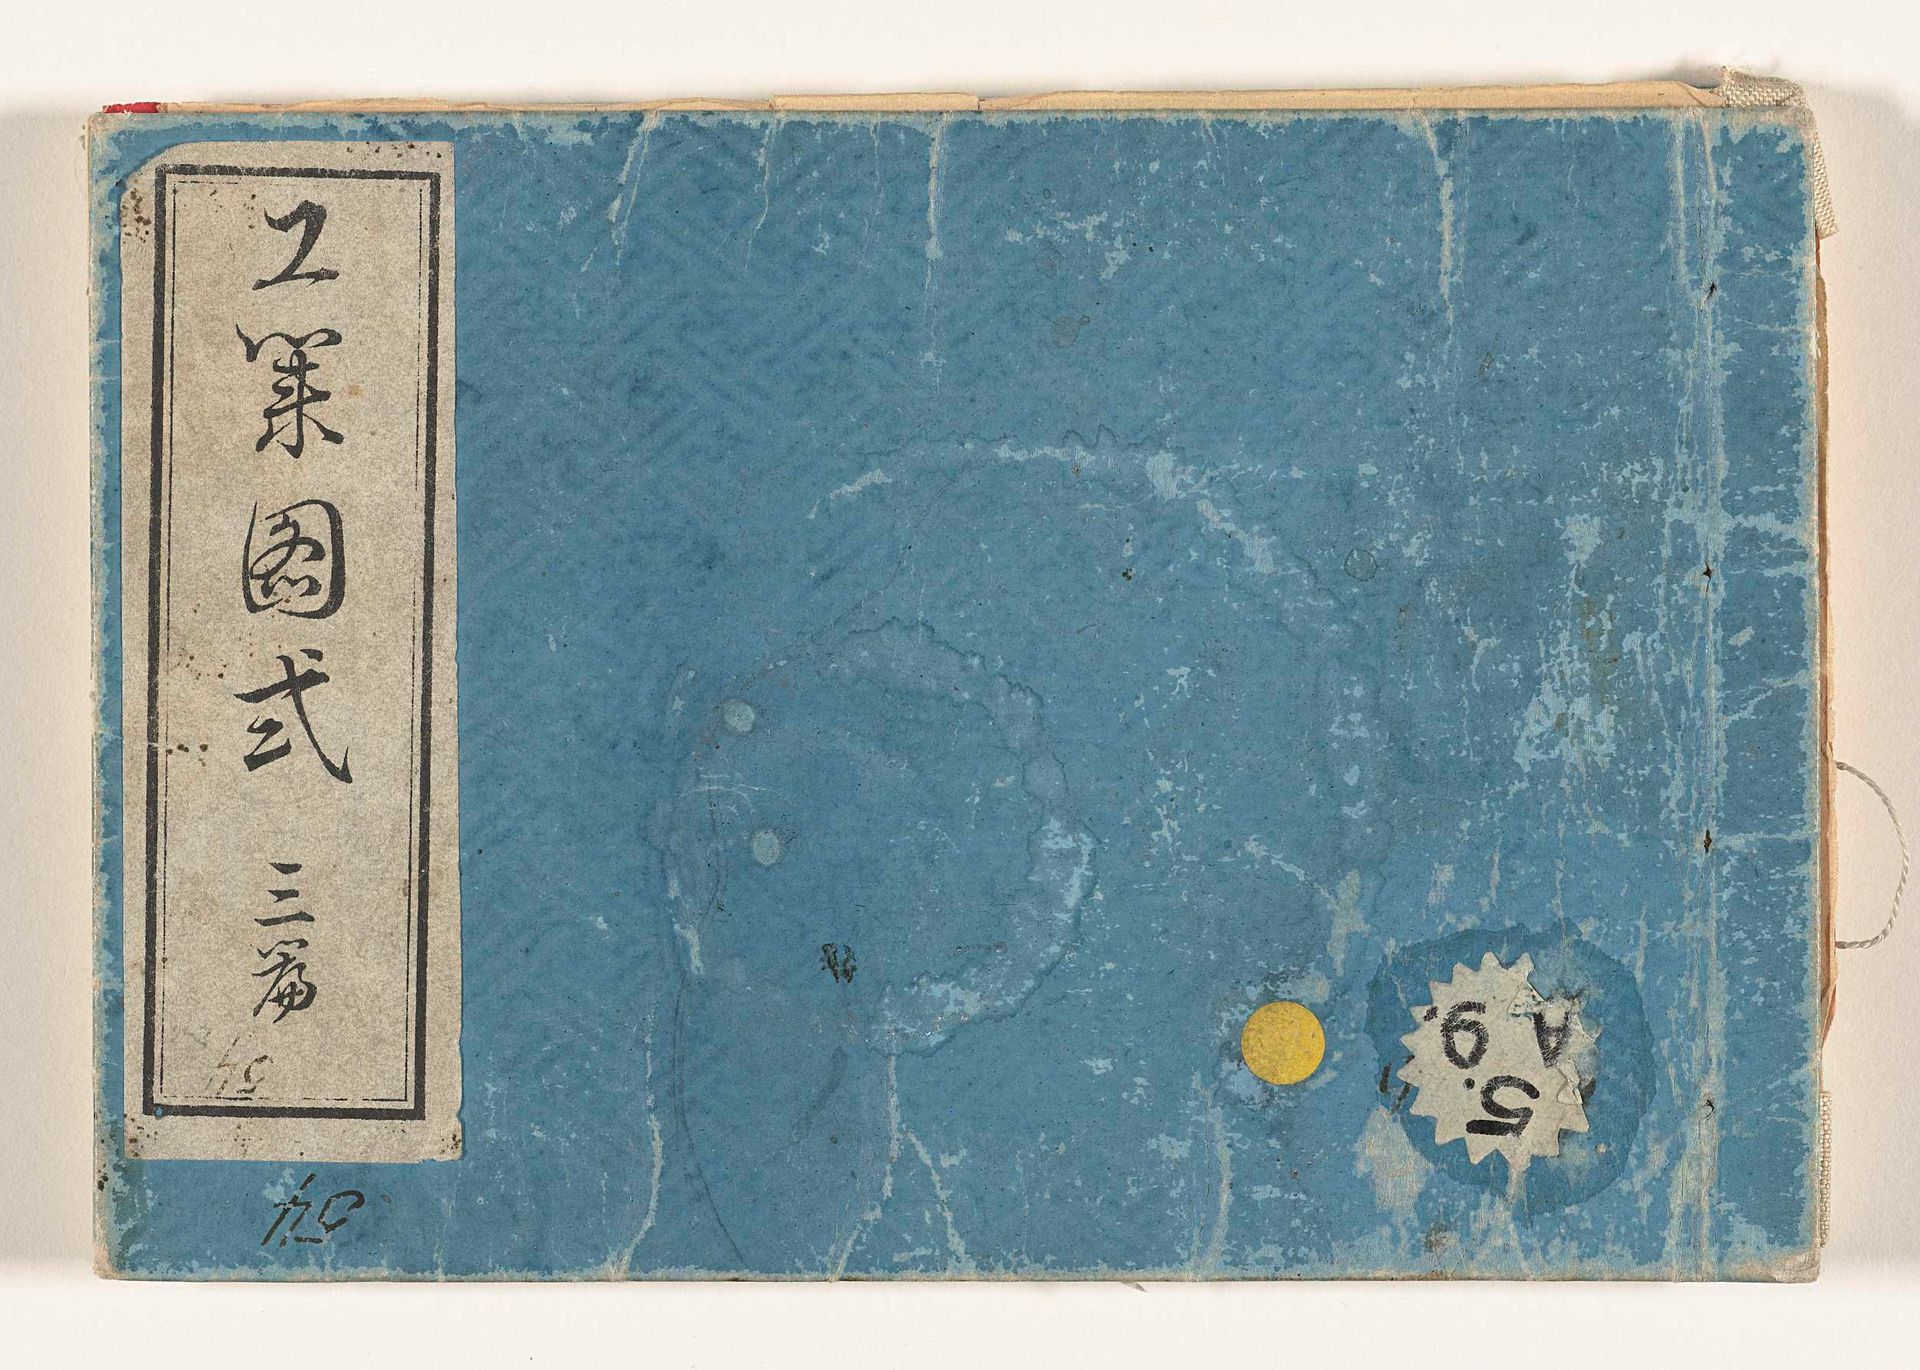 工業图式 三篇
54
54
5.
A 9.